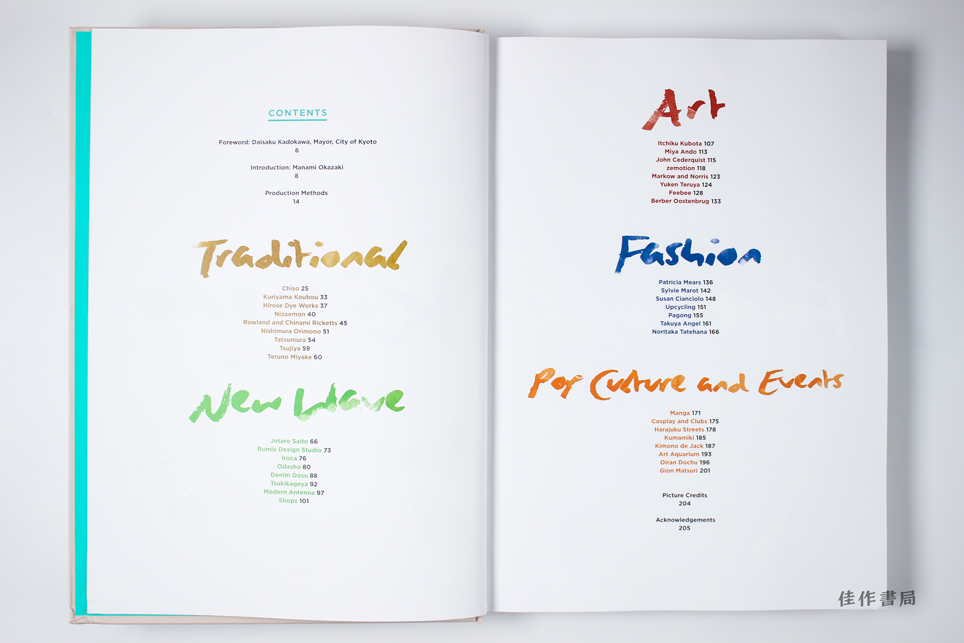 CONTENTS
Foreword: Daisaku Kadokawa, Mayor, City of Kyoto
6
Introduction: Manami Okazaki
8
Production Methods
14
Traditional
Chiso 25
Kuriyama Koubou 33
Hirose Dye Works 37
Nizaemon 40
Rowland and Chinami Ricketts 45
Nishimura Orimono 51
Tatsumura 54
Tsujiya 59
Teruno Miyake 60
New Wave
Jotaro Saito 66
Rumix Design Studio 73
Iroca 76
Odasho 80
Denim Dosu 88
Tsukikageya 92
Modern Antenna 97
Shops 101
Art
Itchiku Kubota 107
Miya Ando 113
John Cederquist 115
zemotion 118
Markow and Norris 123
Yuken Teruya 124
Feebee 128
Berber Oostenbrug 133
Fashion
Patricia Mears 136
Sylvie Marot 142
Susan Cianciolo 148
Upcycling 151
Pagong 155
Takuya Angel 161
Noritaka Tatehana 166
Pop Culture and Events
Manga 171
Cosplay and Clubs 175
Harajuku Streets 178
Kumamiki 185
Kimono de Jack 187
Art Aquarium 193
Oiran Dochu 196
Gion Matsuri 201
Picture Credits
204
Acknowledgements
205
佳作書局